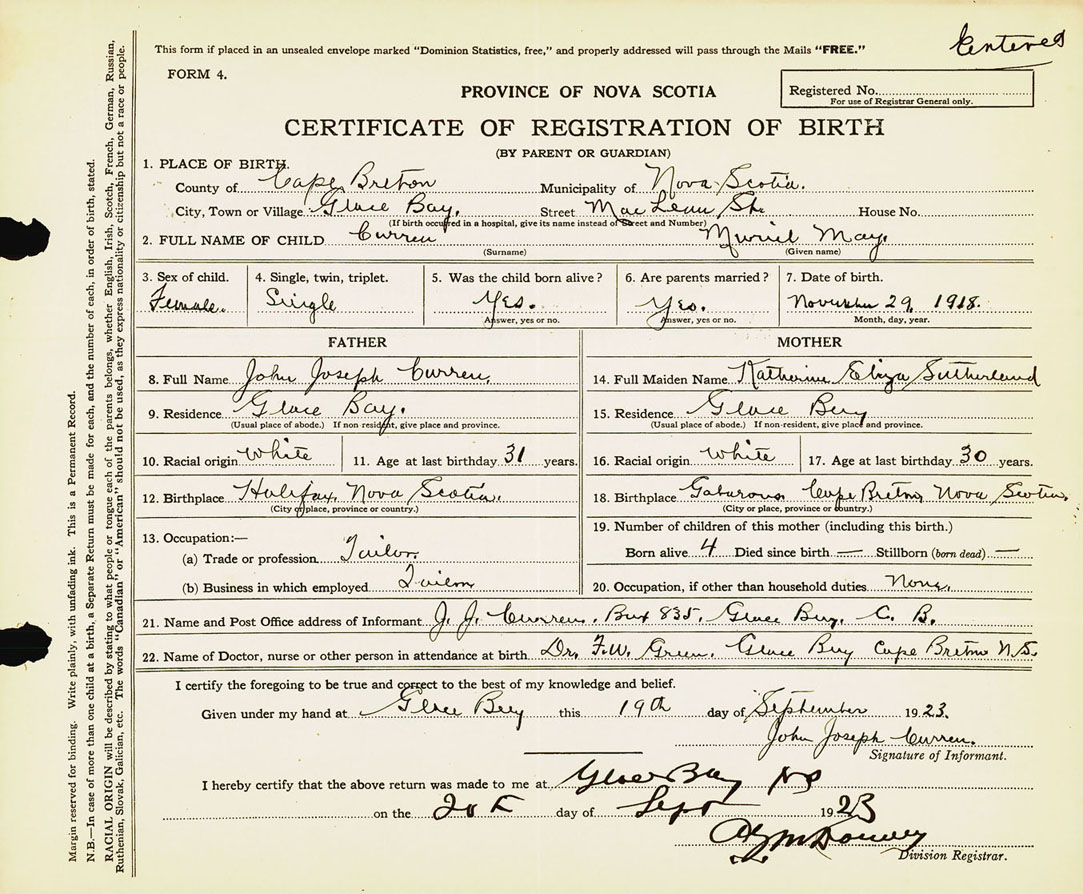 Entered
This form if placed in an unsealed envelope marked "Dominion Statistics, free," and properly addressed will pass through the Mails "FREE."
FORM 4.
Registered No.
For use of Registrar General only.
PROVINCE OF NOVA SCOTIA
CERTIFICATE OF REGISTRATION OF BIRTH
(BY PARENT OR GUARDIAN)
1. PLACE OF BIRTH.
County of Cape Breton Municipality of Nova Scotia.
City, Town or Village Glace Bay. Street MacLean St. House No.
(If birth occurred in a hospital, give its name instead of Street and Number)
2. FULL NAME OF CHILD Curren Muriel May.
(Surname) (Given name)
3. Sex of child. 4. Single, twin, triplet. 5. Was the child born alive? 6. Are parents married? 7. Date of birth.
Female. Single Yes. Yes. November 29, 1918.
Answer, yes or no. Answer, yes or no. Month, day, year.
FATHER
8. Full Name John Joseph Curren.
9. Residence Glace Bay.
(Usual place of abode.) If non-resident, give place and province.
10. Racial origin White 11. Age at last birthday 31 years.
12. Birthplace Halifax, Nova Scotia.
(City or place, province or country.)
13. Occupation:—
(a) Trade or profession Tailor.
(b) Business in which employed Tailor
MOTHER
14. Full Maiden Name Katherine Eliza Sutherland
15. Residence Glace Bay
(Usual place of abode.) If non-resident, give place and province.
16. Racial origin White 17. Age at last birthday 30 years.
18. Birthplace Gabarous Cape Breton Nova Scotia,
(City or place, province or country.)
19. Number of children of this mother (including this birth.)
Born alive 4 Died since birth — Stillborn (born dead) —
20. Occupation, if other than household duties None.
21. Name and Post Office address of Informant J. J. Curren. Box 835, Glace Bay, C. B.
22. Name of Doctor, nurse or other person in attendance at birth Dr. F.W. Green, Glace Bay Cape Breton N.S.
I certify the foregoing to be true and correct to the best of my knowledge and belief.
Given under my hand at Glace Bay this 19th day of September 1923.
John Joseph Curren.
Signature of Informant.
I hereby certify that the above return was made to me at Glace Bay NS
on the 20 day of Sept 1923
Division Registrar.
Margin reserved for binding. Write plainly, with unfading ink. This is a Permanent Record.
N.B.—In case of more than one child at a birth, a Separate Return must be made for each, and the number of each, in order of birth, stated.
RACIAL ORIGIN will be described by stating to what people or tongue each of the parents belongs, whether English, Irish, Scotch, French, German, Russian,
Ruthenian, Slovak, Galician, etc. The words "Canadian" or "American" should not be used, as they express nationality or citizenship but not a race or people.